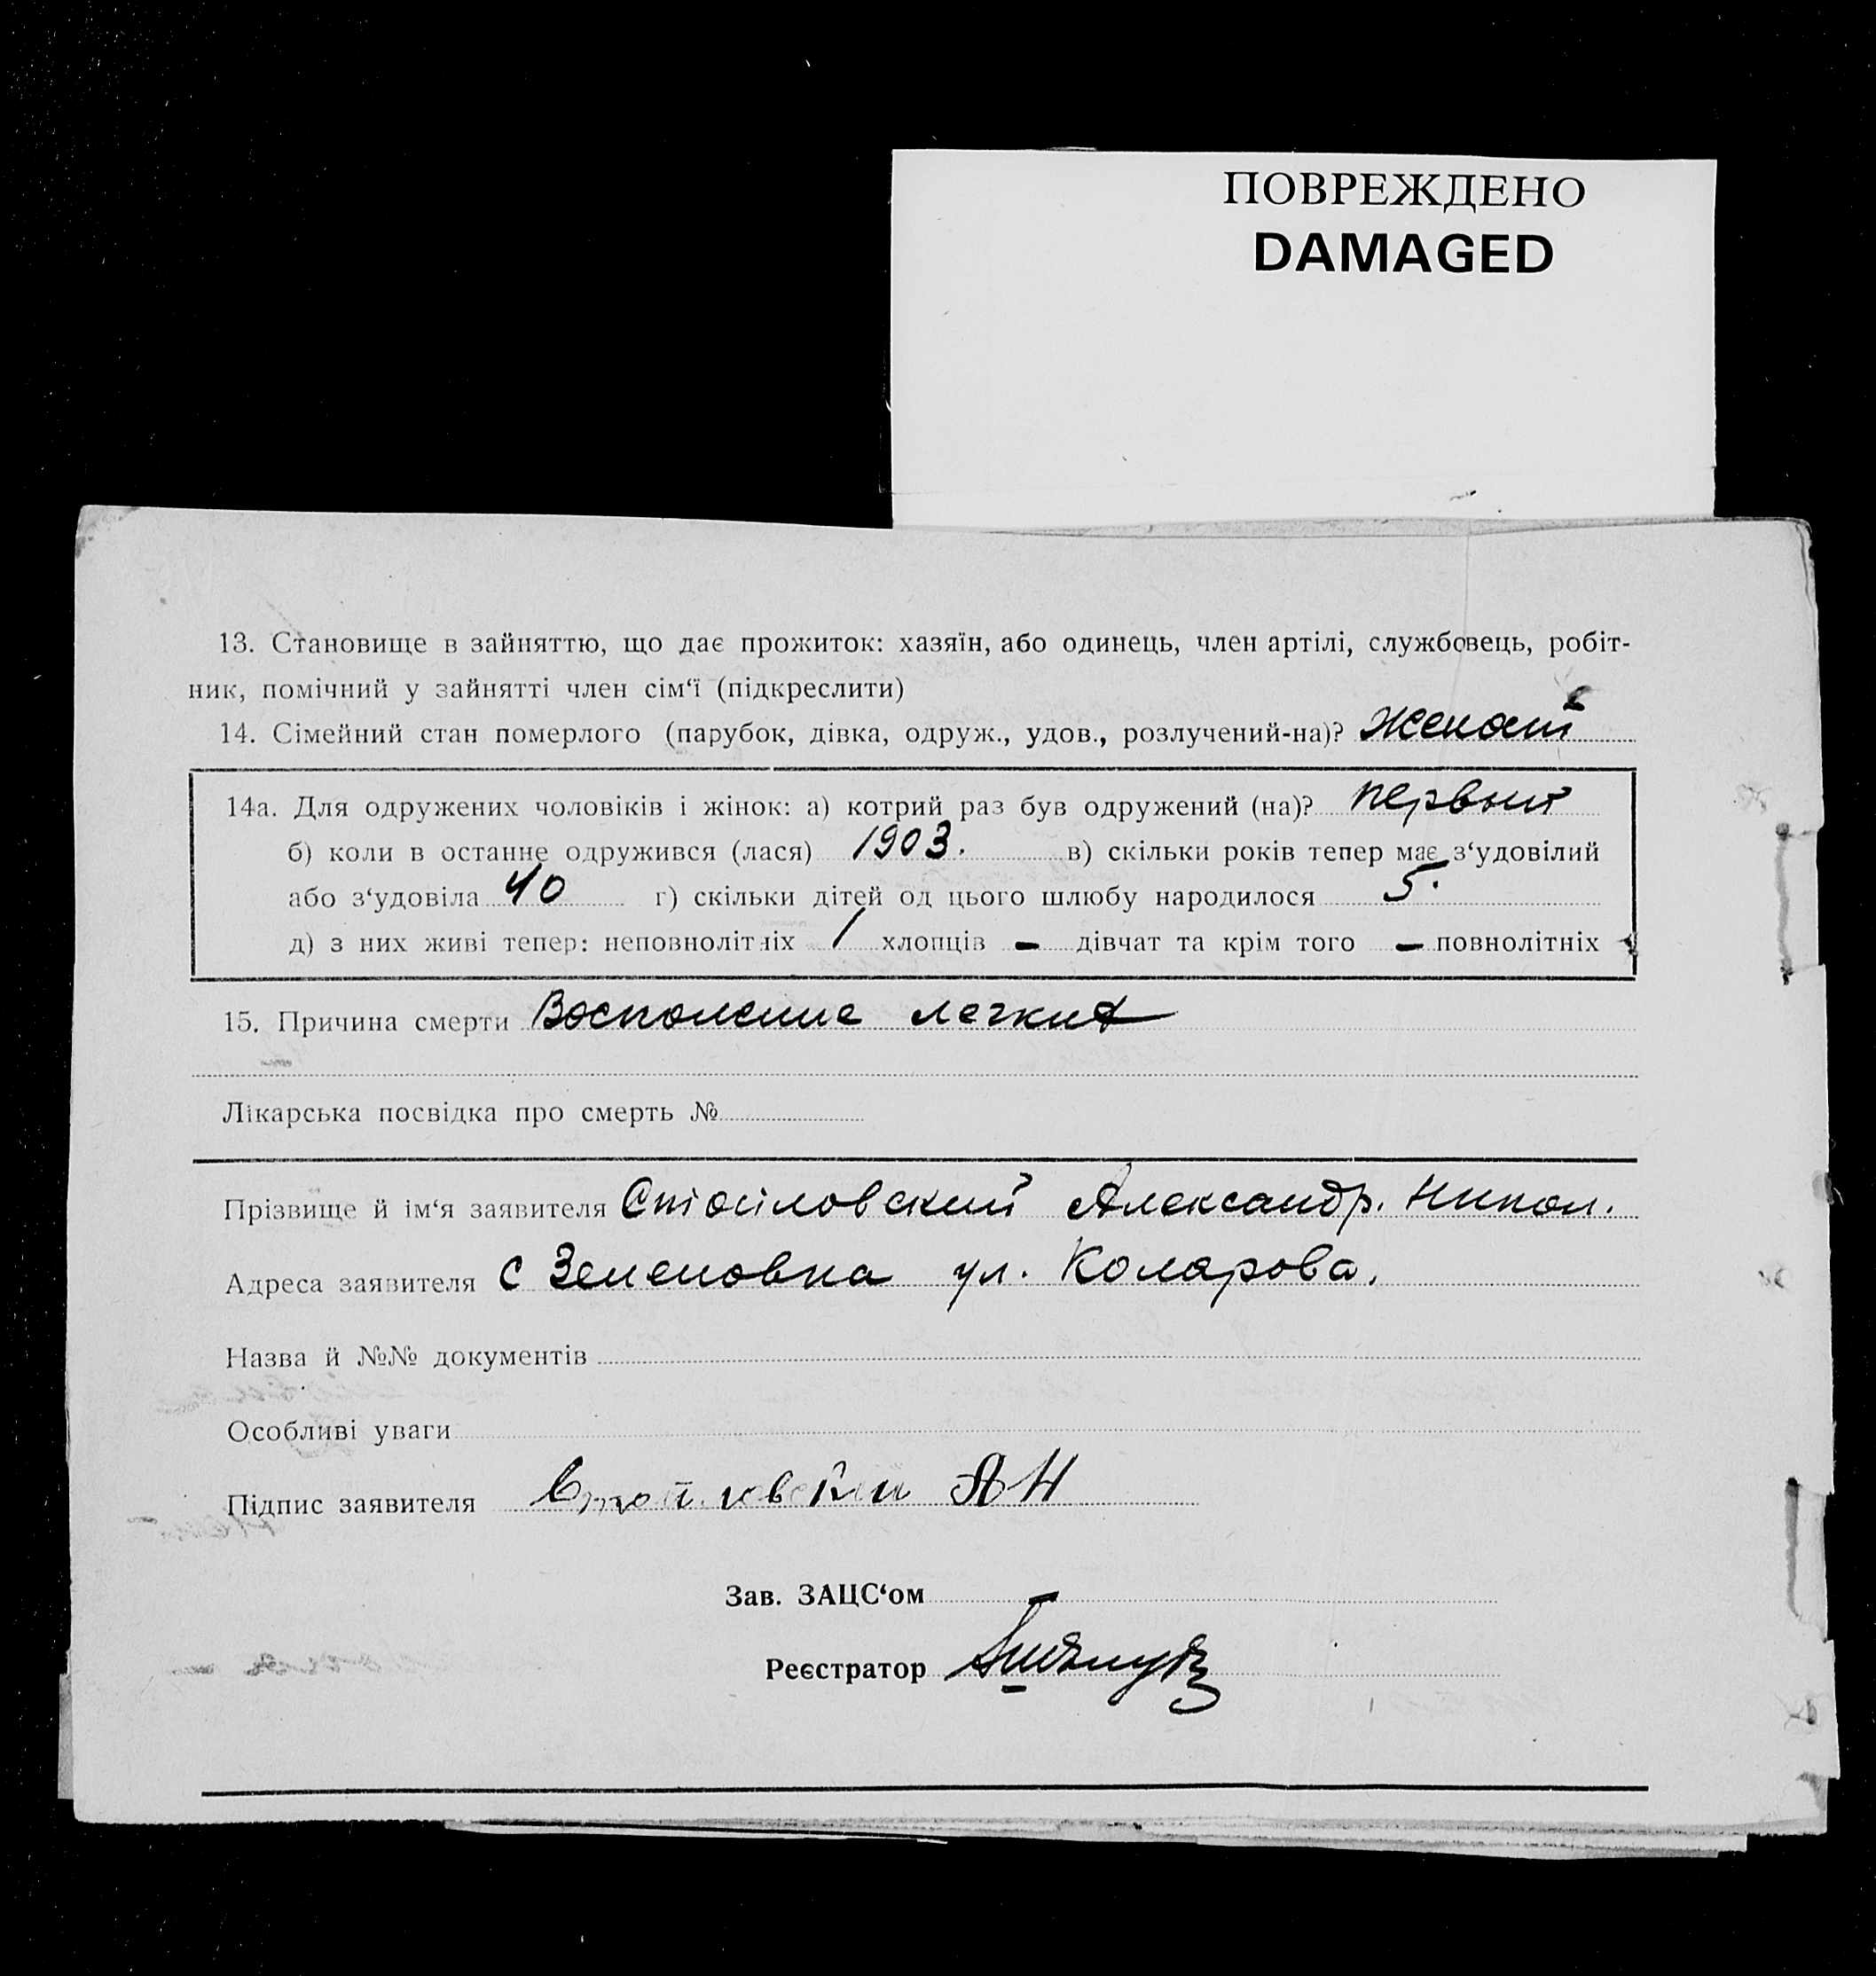 ПОВРЕЖДЕНО
DAMAGED
13. Становище в зайняттю, що дає прожиток: хазяїн, або одинець, член артілі, службовець, робіт-
ник, помічний у зайнятті член сім‘ї (підкреслити)
14. Сімейний стан померлого (парубок, дівка, одруж., удов., розлучений-на)? Женат
14а. Для одружених чоловіків і жінок: а) котрий раз був одружений (на)? первый
б) коли в останнє одружився (лася) 1903. в) скільки років тепер має з‘удовілий
або з‘удовіла 40 г) скільки дітей од цього шлюбу народилося 5.
д) з них живі тепер: неповнолітніх 1 хлопців – дівчат та крім того – повнолітніх
15. Причина смерти Воспаление легких
Лікарська посвідка про смерть №
Прізвище й ім‘я заявителя Стойловский Александр. Никол.
Адреса заявителя с Зеленовка ул. Коларова.
Назва й №№ документів
Особливі уваги
Підпис заявителя Стойловский АН
Зав. ЗАЦС‘ом
Реєстратор